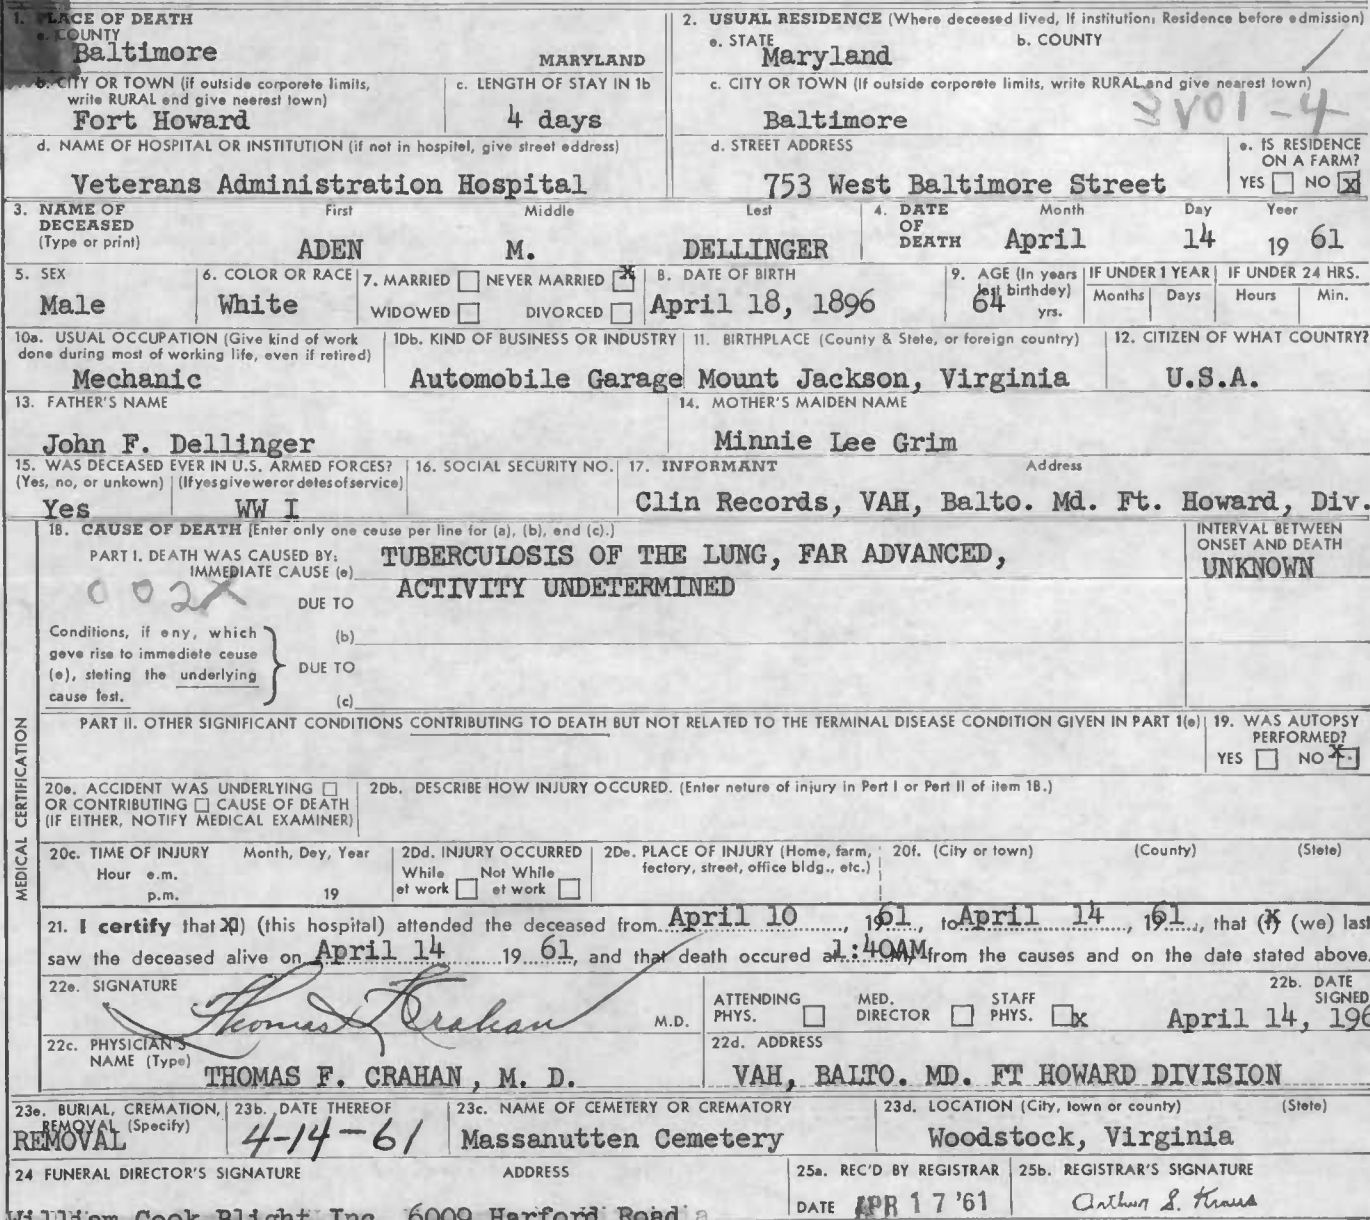 1. PLACE OF DEATH
a. COUNTY
Baltimore MARYLAND
2. USUAL RESIDENCE (Where deceased lived, If institution: Residence before admission)
a. STATE b. COUNTY
Maryland
b. CITY OR TOWN (if outside corporate limits, write RURAL and give nearest town)
Fort Howard
c. LENGTH OF STAY IN 1b
4 days
c. CITY OR TOWN (If outside corporate limits, write RURAL and give nearest town)
Baltimore
d. NAME OF HOSPITAL OR INSTITUTION (if not in hospital, give street address)
Veterans Administration Hospital
d. STREET ADDRESS
753 West Baltimore Street
e. IS RESIDENCE ON A FARM?
YES NO X
3. NAME OF DECEASED (Type or print)
First Middle Last
ADEN M. DELLINGER
4. DATE OF DEATH
Month Day Year
April 14 19 61
5. SEX
Male
6. COLOR OR RACE
White
7. MARRIED NEVER MARRIED X
WIDOWED DIVORCED
8. DATE OF BIRTH
April 18, 1896
9. AGE (In years last birthday)
64 yrs.
IF UNDER 1 YEAR
Months Days
IF UNDER 24 HRS.
Hours Min.
10a. USUAL OCCUPATION (Give kind of work done during most of working life, even if retired)
Mechanic
10b. KIND OF BUSINESS OR INDUSTRY
Automobile Garage
11. BIRTHPLACE (County & State, or foreign country)
Mount Jackson, Virginia
12. CITIZEN OF WHAT COUNTRY?
U.S.A.
13. FATHER'S NAME
John F. Dellinger
14. MOTHER'S MAIDEN NAME
Minnie Lee Grim
15. WAS DECEASED EVER IN U.S. ARMED FORCES?
(Yes, no, or unkown) (If yes give war or dates of service)
Yes WW I
16. SOCIAL SECURITY NO.
17. INFORMANT Address
Clin Records, VAH, Balto. Md. Ft. Howard, Div.
MEDICAL CERTIFICATION
18. CAUSE OF DEATH [Enter only one cause per line for (a), (b), and (c).]
INTERVAL BETWEEN ONSET AND DEATH
PART I. DEATH WAS CAUSED BY:
IMMEDIATE CAUSE (a) TUBERCULOSIS OF THE LUNG, FAR ADVANCED,
UNKNOWN
002X
DUE TO ACTIVITY UNDETERMINED
Conditions, if any, which gave rise to immediate cause (a), stating the underlying cause last.
(b)
DUE TO
(c)
PART II. OTHER SIGNIFICANT CONDITIONS CONTRIBUTING TO DEATH BUT NOT RELATED TO THE TERMINAL DISEASE CONDITION GIVEN IN PART 1(a)
19. WAS AUTOPSY PERFORMED?
YES NO X
20a. ACCIDENT WAS UNDERLYING
OR CONTRIBUTING CAUSE OF DEATH
(IF EITHER, NOTIFY MEDICAL EXAMINER)
20b. DESCRIBE HOW INJURY OCCURED. (Enter nature of injury in Part I or Part II of item 18.)
20c. TIME OF INJURY Month, Day, Year
Hour a.m.
p.m. 19
20d. INJURY OCCURRED
While at work Not While at work
20e. PLACE OF INJURY (Home, farm, factory, street, office bldg., etc.)
20f. (City or town) (County) (State)
21. I certify that (I) (this hospital) attended the deceased from April 10, 1961, to April 14, 1961, that (I) (we) last
saw the deceased alive on April 14 19 61, and that death occured at 1:40AM from the causes and on the date stated above.
22a. SIGNATURE
Thomas F Crahan M.D.
ATTENDING PHYS. MED. DIRECTOR STAFF PHYS. x
22b. DATE SIGNED
April 14, 196
22c. PHYSICIAN'S NAME (Type)
THOMAS F. CRAHAN, M. D.
22d. ADDRESS
VAH, BALTO. MD. FT HOWARD DIVISION
23a. BURIAL, CREMATION, REMOVAL (Specify)
REMOVAL
23b. DATE THEREOF
4-14-61
23c. NAME OF CEMETERY OR CREMATORY
Massanutten Cemetery
23d. LOCATION (City, town or county) (State)
Woodstock, Virginia
24 FUNERAL DIRECTOR'S SIGNATURE ADDRESS
William Cook Blight Inc. 6009 Harford Road
25a. REC'D BY REGISTRAR
DATE APR 17 '61
25b. REGISTRAR'S SIGNATURE
Arthur S. Kraus